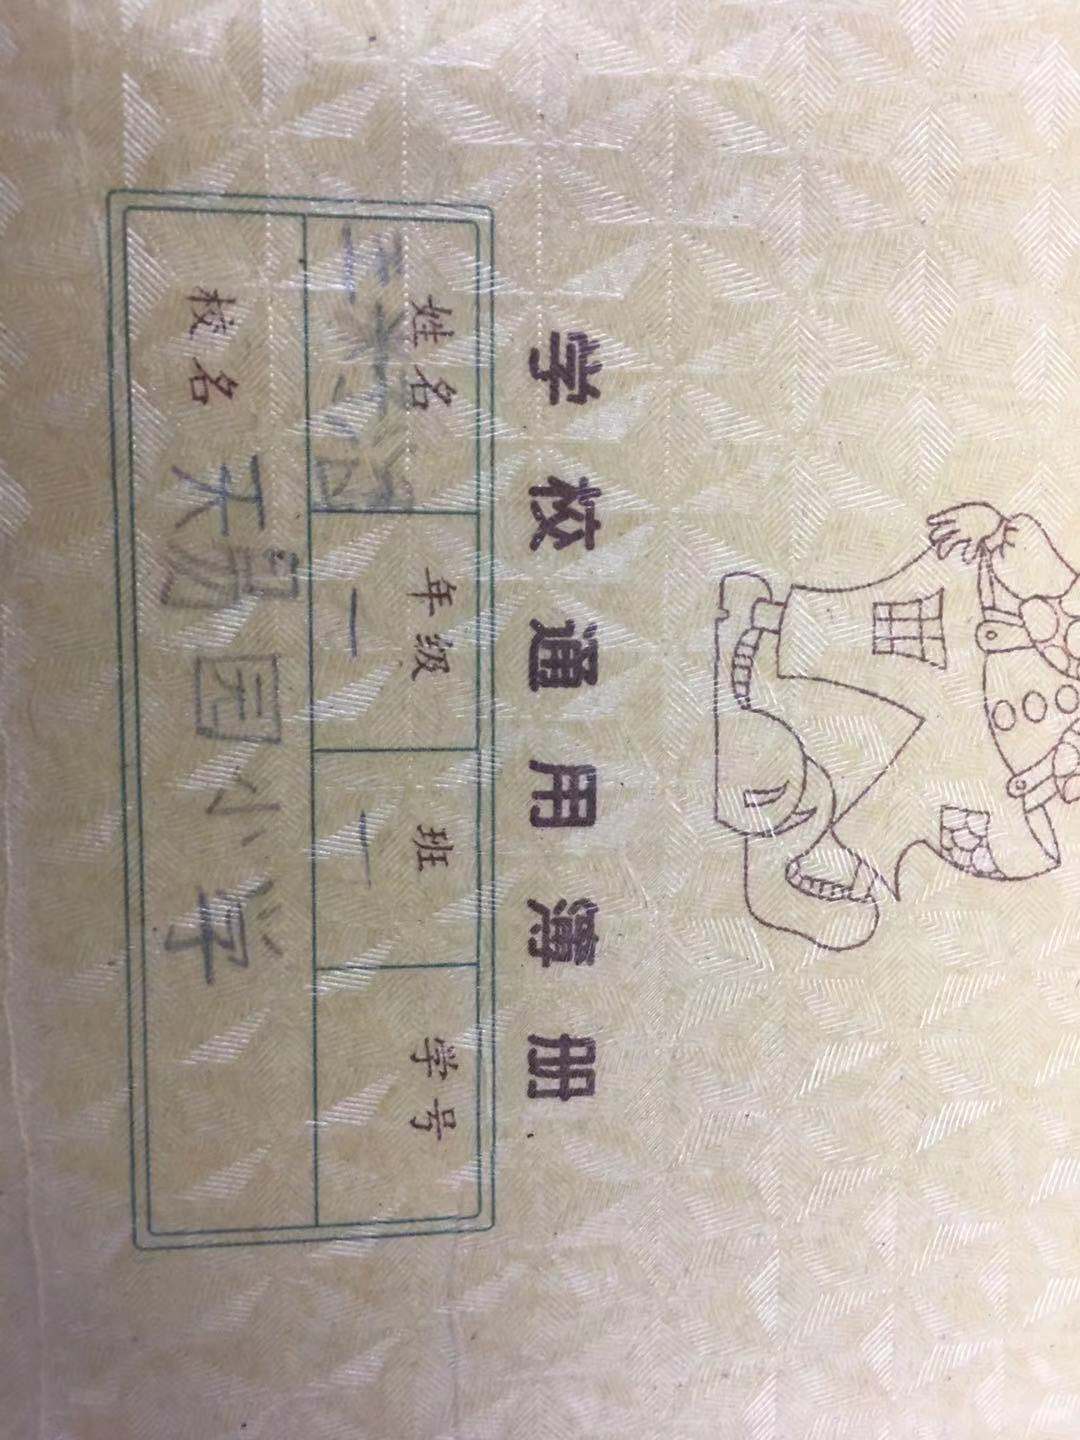 学校通用簿册
姓名 年级 班 学号
一 一
校名 天鹅园小学